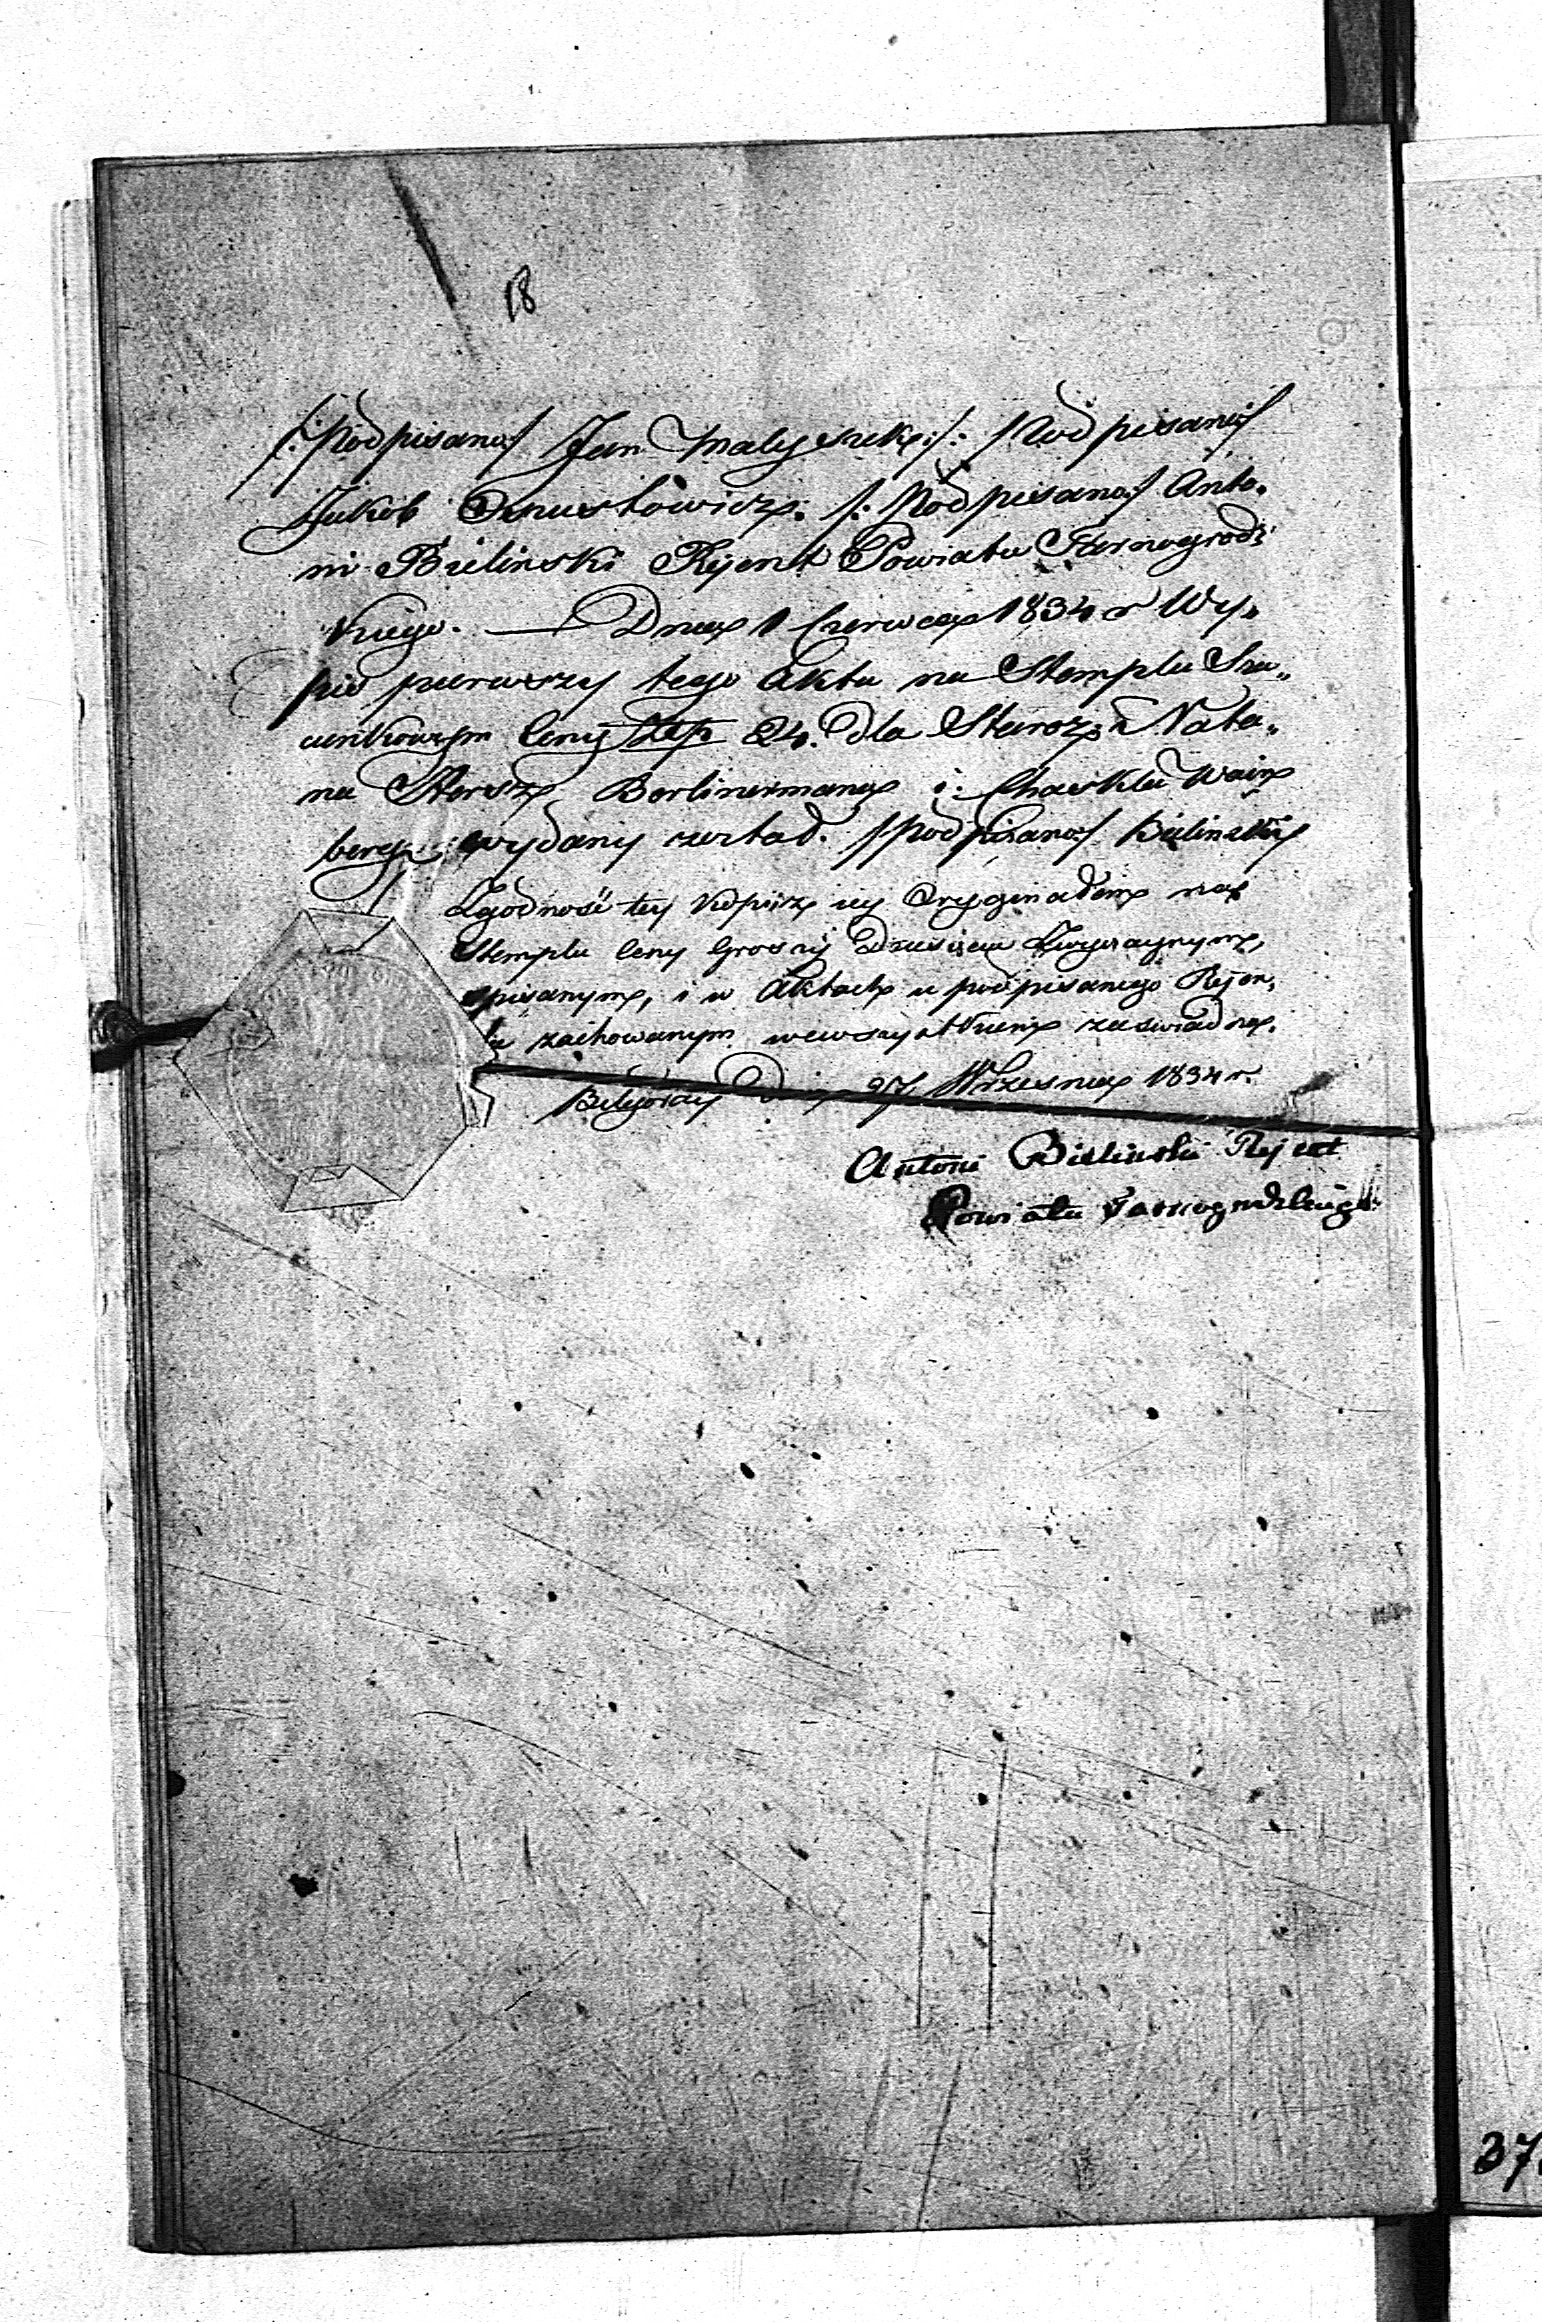 18
/:Podpisano/ Jan Małyszek:/: /Podpisano/
Jakob /: Podpisano/ Anto-
ni Bielinski Rejent Powiatu Tarnogrodz
kiego. — Dnia 1 Czerwca 1834 r Wy-
pis pierwszy tego Aktu na Stemplu Sza-
cunkowym Ceny Złp 24. dla Staroz: Nata-
na Hersza Berlinermana i Chaskla Wain
berga wydany został. /Podpisano/ Bielinski
Zgodność tey kopii z iey Oryginałem na
Stemplu Ceny Groszy Dziesięciu Zwyczaynym,
spisanym, i w Aktach u podpisanego Rejen-
ta zachowanym wewszystkiem zaświadcza.
Biłgoray Dnia 27 Wrzesnia 1834 r.
Antoni Bielinski Rejent
Powiatu Tarnogrodzkiego
37